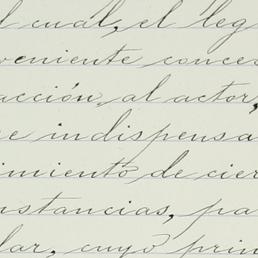 l cual, el leg
veniente conces
acción, al actor,
e indispensa
imiento de cier
nstancias, pa
lar, cuyo prin